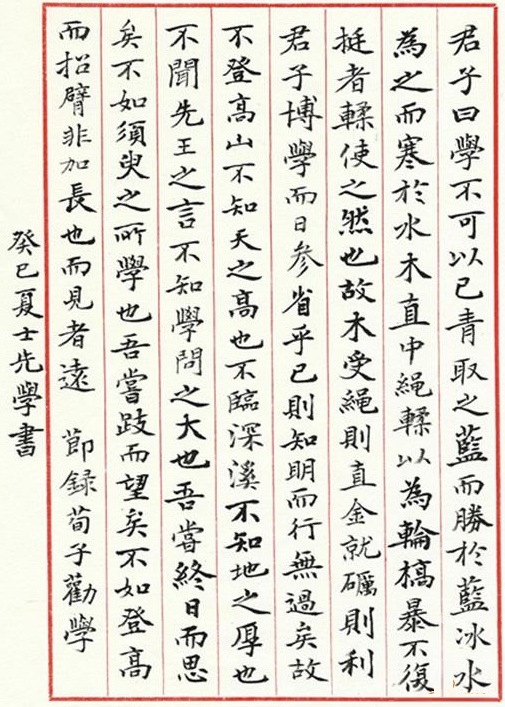 君子曰學不可以已青取之藍而勝於藍冰水
為之而寒於水木直中繩輮以為輪槁暴不復
挺者輮使之然也故木受繩則直金就礪則利
君子博學而日參省乎己則知明而行無過矣故
不登高山不知天之高也不臨深溪不知地之厚也
不聞先王之言不知學問之大也吾嘗終日而思
矣不如須臾之所學也吾嘗跂而望矣不如登高
而招臂非加長也而見者遠 節録荀子勸學
癸巳夏士先學書